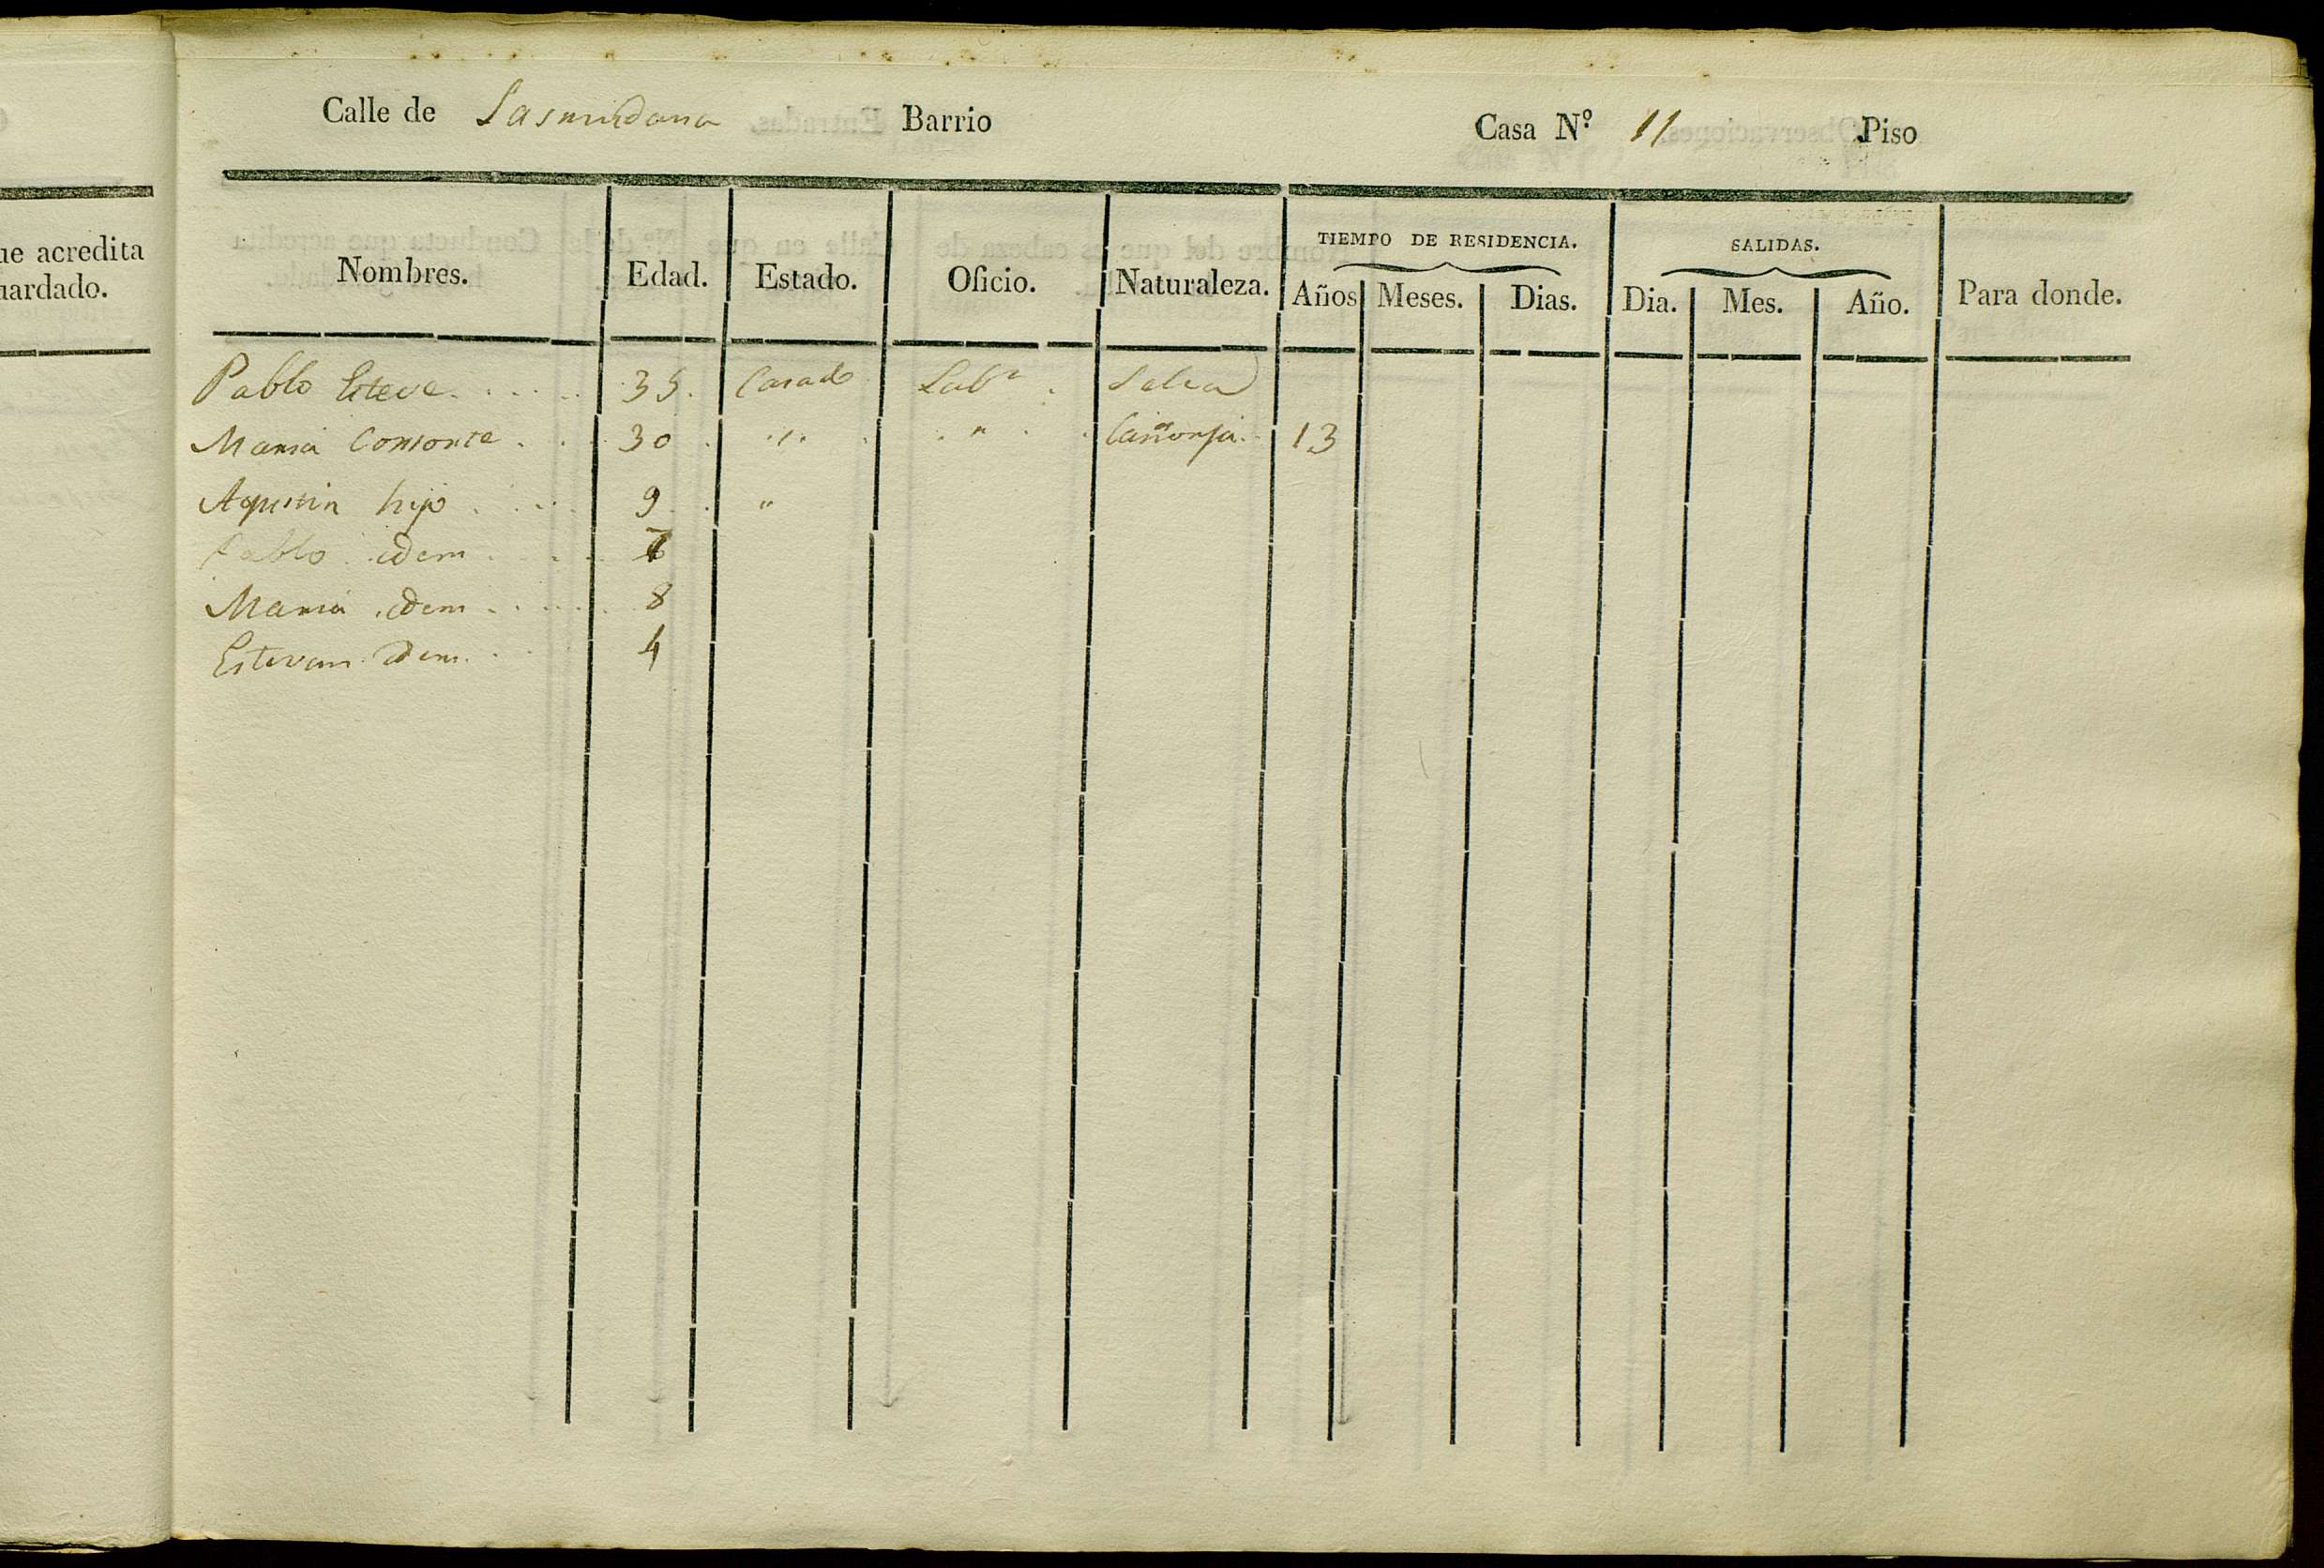 ue acredita
uardado.
Calle de Barrio Casa N.º 11 Piso
Nombres. Edad. Estado. Oficio. Naturaleza. TIEMPO DE RESIDENCIA. SALIDAS. Para donde.
Años Meses. Dias. Dia. Mes. Año.
Pablo Esteve. 35. Casado Labr. Selva
Maria Consorte. 30. " " 13
Agustin hijo. 9. "
Pablo idem. 7
Maria idem. 8
Estevan idem. 4